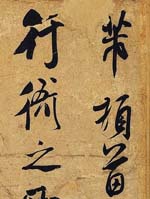 芾頓首
行衙之